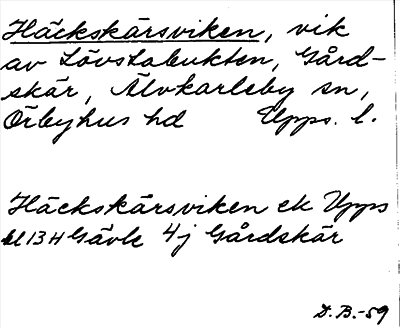 Häckskärsviken, vik
av Lövstabukten, Gård-
skär, Älvkarleby sn,
Örbyhus hd Upps. l.
Häckskärsviken ek Upps
bl 13 H Gävle 4j Gårdskär
D.B.-59